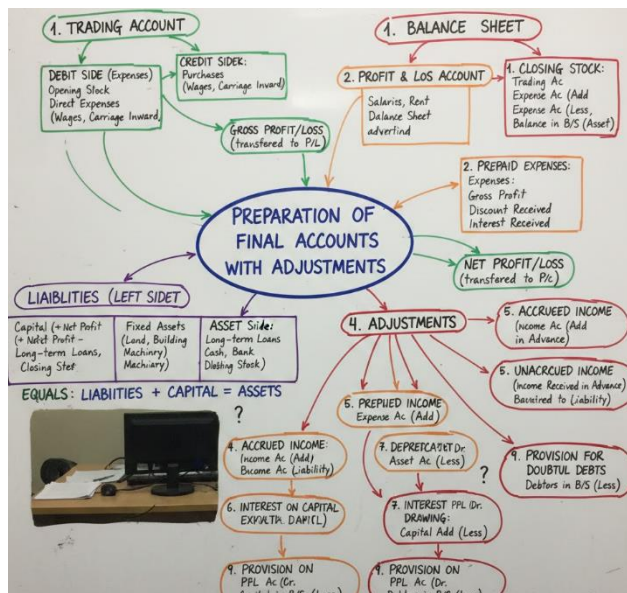 1. TRADING ACCOUNT
DEBIT SIDE (Expenses)
Opening Slock
Direct Expenses
(Wages, Carriage Inward,
CREDIT SIDEK:
Purchases
(Wages, Carriage Invard)
GROSS PROFIT/LOSS
(transfered to P/L)
1. BALANCE SHEET
2. PROFIT & LOS ACCOUNT
Salariis, Rent
Dalance Sheet
adverfind
1. CLOSING STOCK:
Trading Ac
Expense Ac (Add
Expense Ac (Less,
Balance in B/S (Asset)
2. PREPAID EXPENSES:
Expenses:
Gross Profit
Discount Received
Interest Received
PREPARATION OF
FINAL ACCOUNTS
WITH ADJUSTMENTS
NET PROFIT/LOSS
(transfered to P/c)
LIAIBLITIES (LEFT SIDET
Capital (+ Net Profit
(+ Nelet Profit -
Long-term Loans,
Closing Stet
Fixed Assets
(Land, Building
Machinry)
Machiary)
ASSET Side:
Long-term Loans
Cash, Bank
EQUALS: LIABIITIES + CAPITAL = ASSETS
4. ADJUSTMENTS
5. ACCRUEED INCOME
(ncome Ac (Add
in Advance)
5. UNACRCUED INCOME
(Income Received in Advance)
to Liability)
?
5. PREPIUED INCOME
Expense Ac (Add)
4. ACCRUED INCOME:
Income Ac (Add)
Bucome Ac (Liability)
Dr.
Asset Ac (Less)
?
9. PROVISION FOR
DOUBTUL DEBTS
Debtors in B/S (Less)
6. INTEREST ON CAPITAL
7. INTEREST PPL (Dr.
DRAWING:
Capital Add (Less)
9. PROVISION ON
PPL Ac (Cr.
9. PROVISION ON
PPL Ac (Dr.